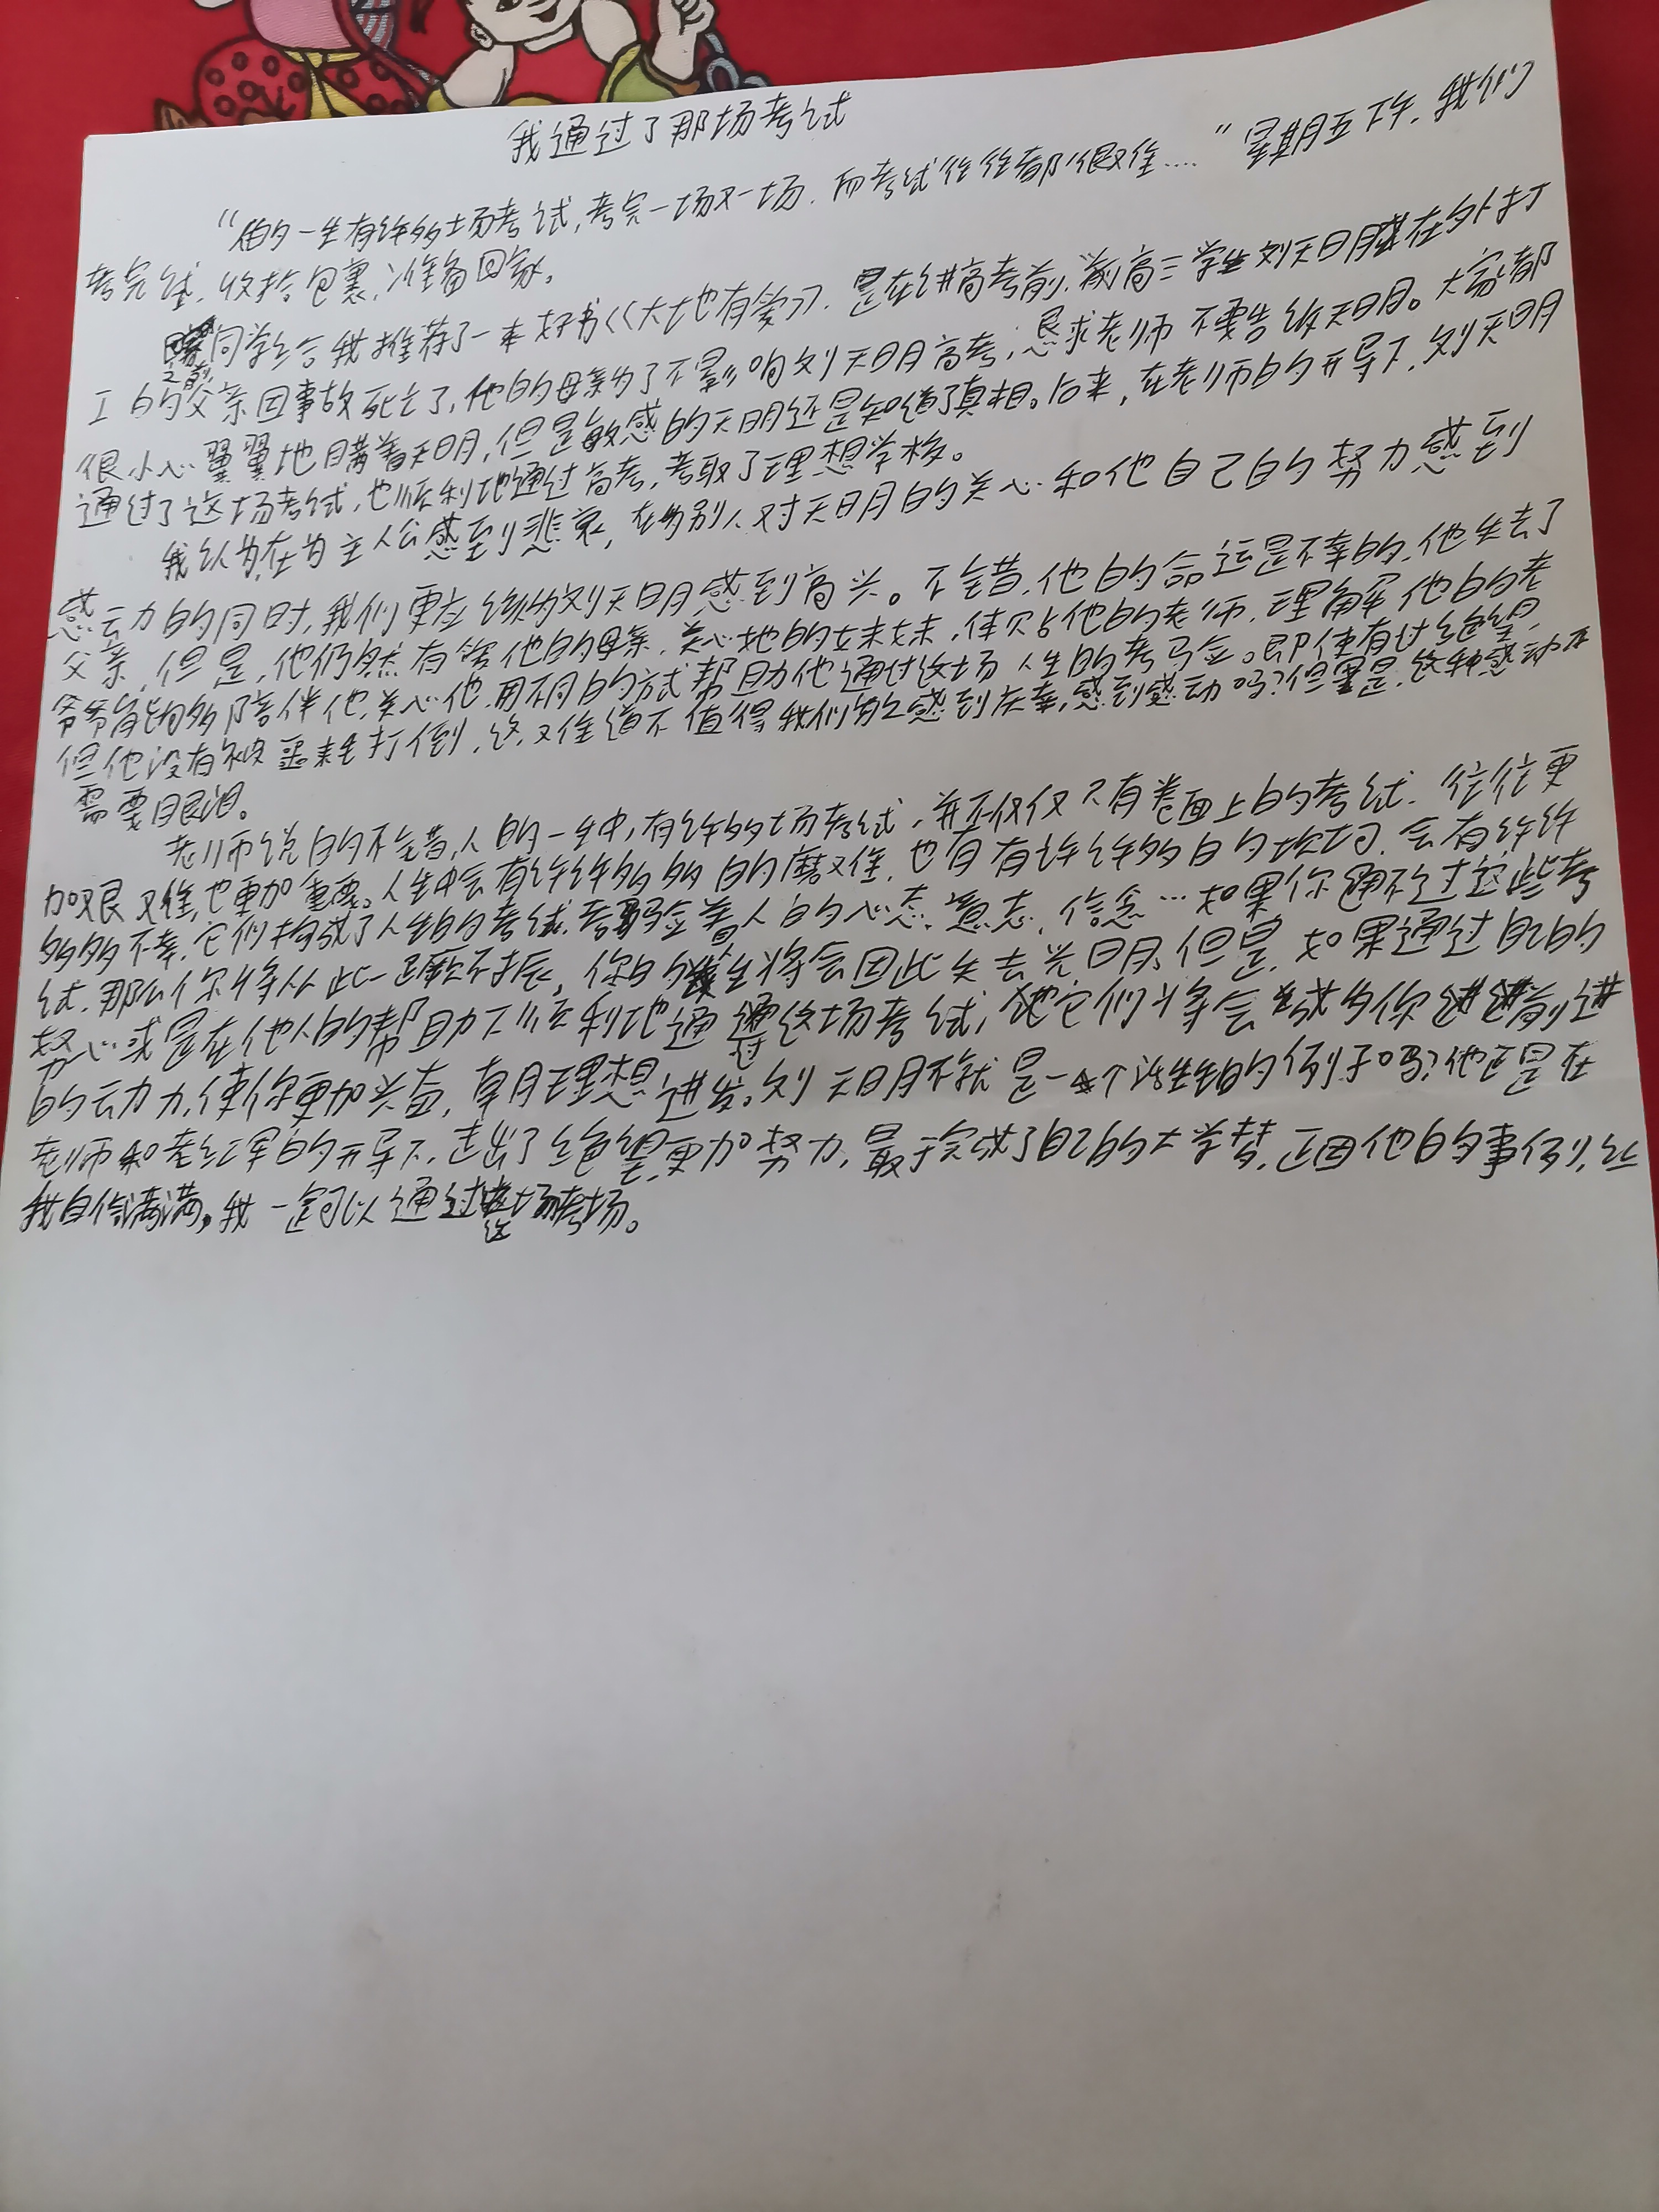 我通过了那场考试
“人的一生有许多场考试,考完一场又一场,而考试往往都很难……”星期五下午,我们
考完试,收拾包裹,准备回家。
之前同学给我推荐了一本好书《大地有爱》,是在讲高考前,高三学生刘天明在外打
工的父亲因事故死亡了,他的母亲为了不影响刘天明高考,恳求老师不要告诉天明。大家都
很小心翼翼地瞒着天明,但是敏感的天明还是知道了真相。后来,在老师的开导下,刘天明
通过了这场考试,也顺利地通过高考,考取了理想学校。
我认为,在为主人公感到悲哀,在为别人对天明的关心和他自己的努力感到
感动的同时,我们更应该为刘天明感到高兴。不错,他的命运是不幸的,他失去了
父亲,但是,他仍然有他的母亲,关心他的妹妹,体贴他的老师,理解他的老
爷爷能够陪伴他,关心他,用不同的方式帮助他通过这场人生的考验。即使有过绝望,
但他没有被噩耗打倒,这难道不值得我们为之感到庆幸,感到感动吗?但是,这种感动不
需要眼泪。
老师说的不错,人的一生中,有许多场考试,并不仅仅只有卷面上的考试,往往更
加艰难,也更加重要。人生中会有许许多多的磨难,也有许许多多的坎坷,会有许许
多多不幸,它们构成了人生的考试,考验着人的心态、意志、信念…如果你通不过这些考
试,那么你将从此一蹶不振,你的人生将会因此失去光明。但是,如果通过自己的
努力或是在他人的帮助下顺利地通过这场考试,它们将会成为你前进
的动力,使你更加兴奋,朝理想进发。刘天明不就是一个活生生的例子吗?他正是在
老师和老红军的开导下,走出了绝望,更加努力,最于完成了自己的大学梦,正因他的事例,让
我自信满满,我一定可以通过这场考场。